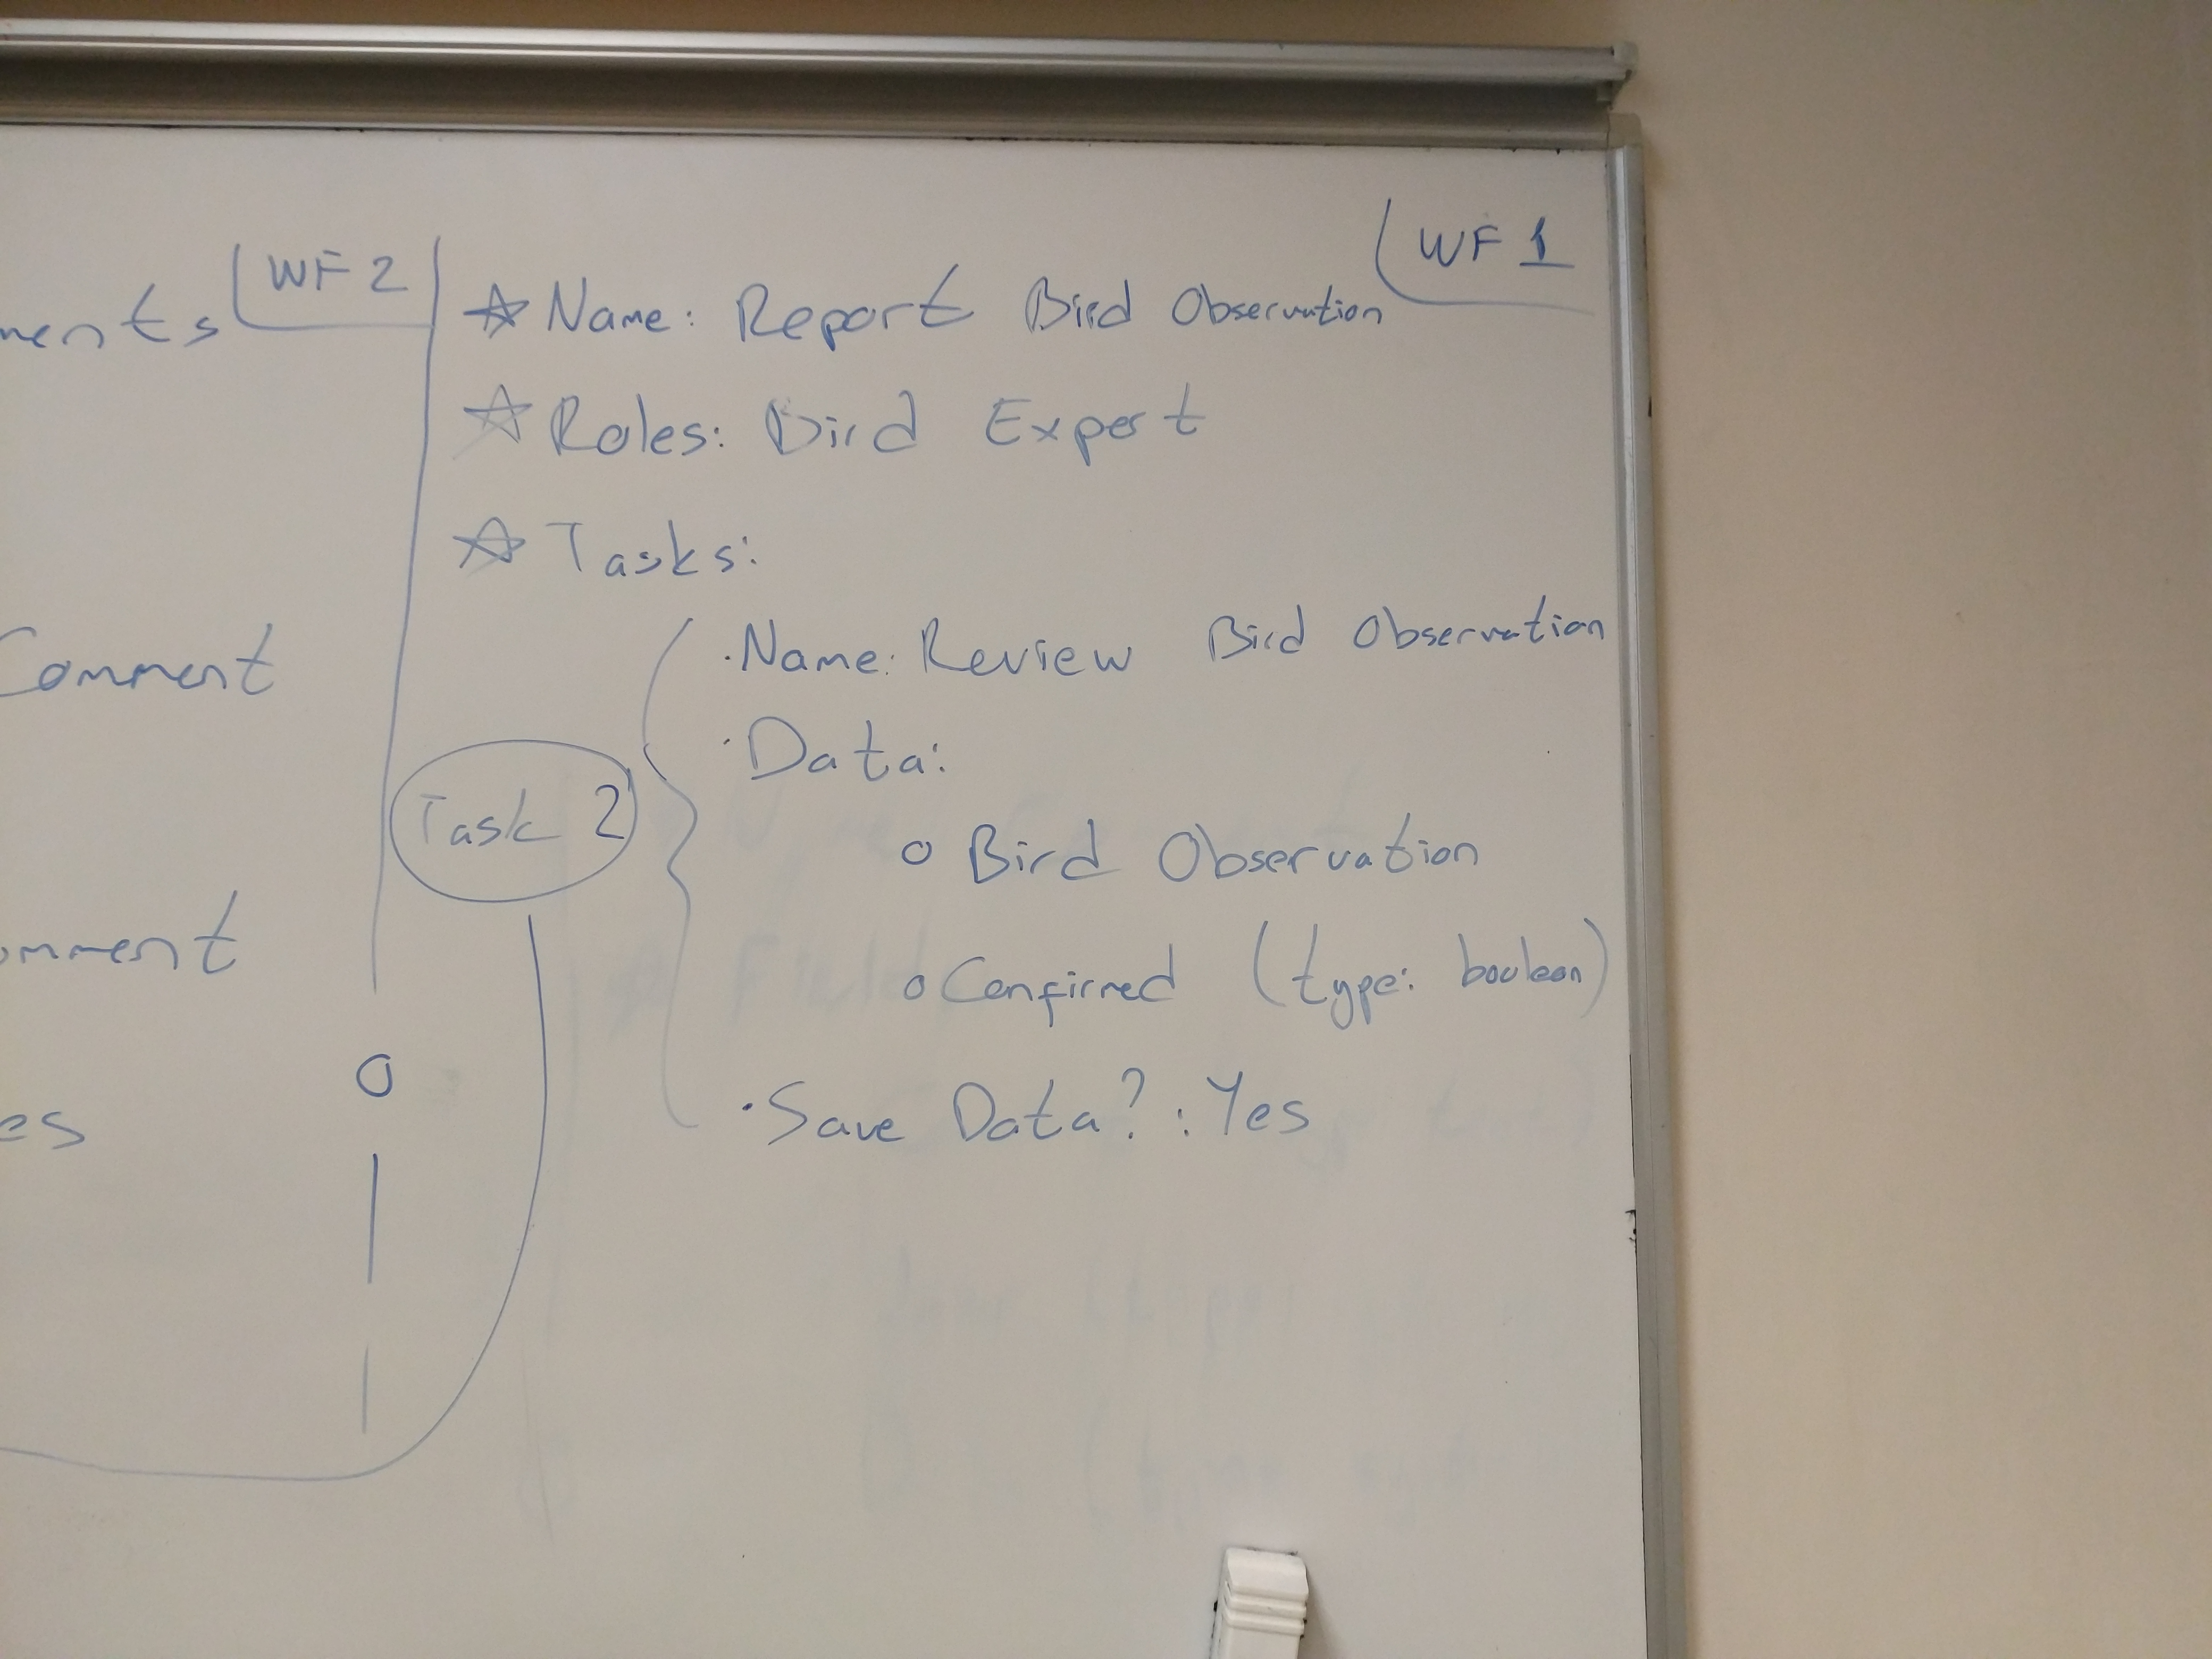 WF 2
ments
Comment
omment
es
WF 1
Name: Report Bird Observation
Roles: Bird Expert
Tasks:
Task 2
· Name: Review Bird Observation
· Data:
o Bird Observation
o Confirmed (type: boolean)
· Save Data? : Yes